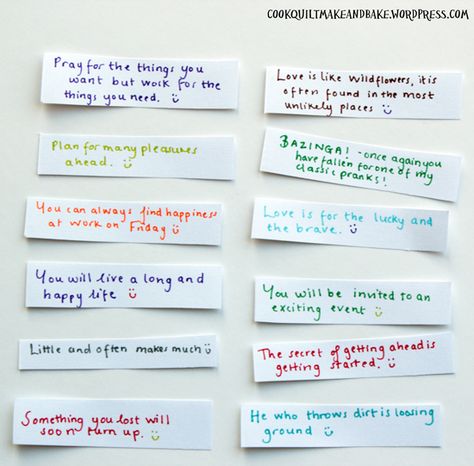 COOKQUILTMAKEANDBAKE.WORDPRESS.COM
Pray for the things you
want but work for the
things you need.
Plan for many pleasures
ahead.
You can always find happiness
at work on Friday
You will live a long and
happy life
Little and often makes much
Something you lost will
soon turn up.
Love is like wildflowers, it is
often found in the most
unlikely places
BAZINGA! - once again you
have fallen for one of my
classic pranks!
Love is for the lucky and
the brave.
You will be invited to an
exciting event
The secret of getting ahead is
getting started.
He who throws dirt is loosing
ground